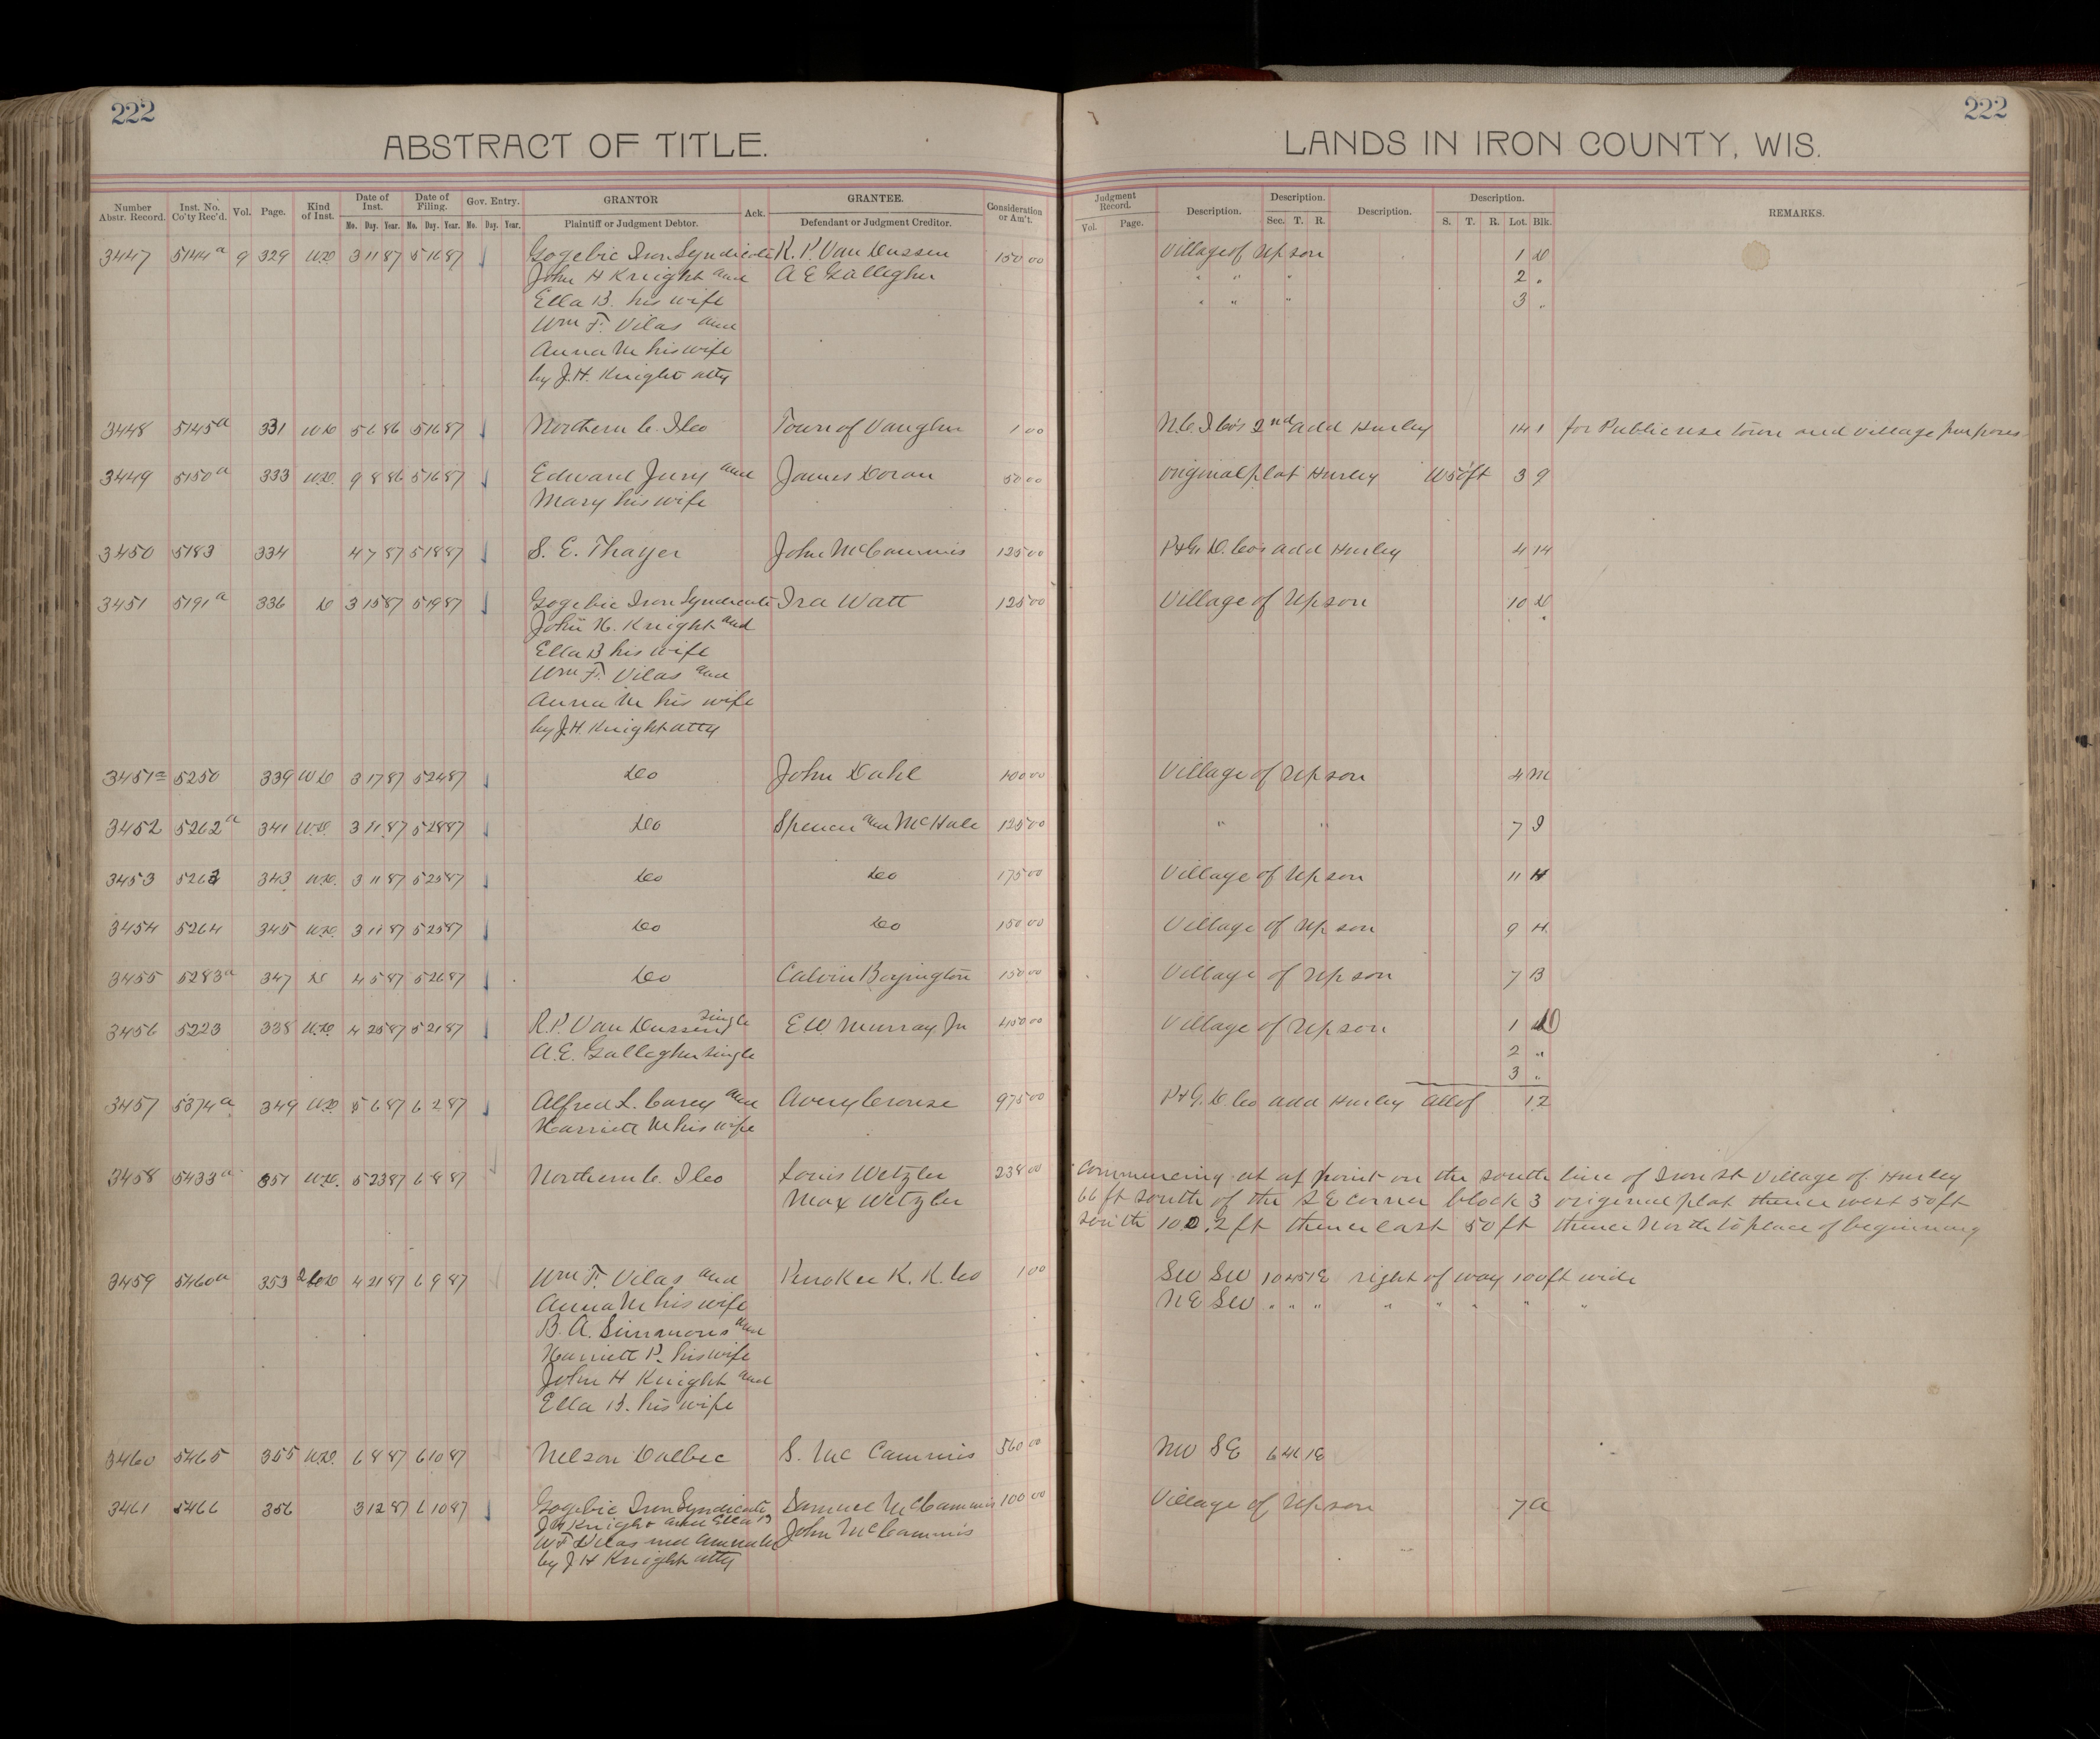 222
222
ABSTRACT OF TITLE.
LANDS IN IRON COUNTY, WIS.
Number Abstr. Record. Inst. No. Co'ty Rec'd. Vol. Page. Kind of Inst. Date of Inst. Mo. Day. Year. Date of Filing. Mo. Day. Year. Gov. Entry. Mo. Day. Year. GRANTOR Plaintiff or Judgment Debtor. Ack. GRANTEE. Defendant or Judgment Creditor. Consideration or Am't. Judgment Record. Vol. Page. Description. Description. Sec. T. R. Description. Description. S. T. R. Lot. Blk. REMARKS.
3447 5144a 9 329 WD 3 11 87 5 16 87 Gogebic Iron Syndicate R. P. Van Dussen 150 00 Village of Upson 1 D
John H Knight and A E Gallagher " " " 2 "
Ella B. his wife " " " 3 "
Wm F. Vilas and
Anna M his wife
by J. H. Knight atty
3448 5145a 331 WD 5 6 86 5 16 87 Northern C. I Co Town of Vaughn 1 00 N.C. I Co's 2nd add Hurley 14 1 for Public use town and village purposes
3449 5150a 333 WD. 9 8 86 5 16 87 Edward Jury and James Doran 50 00 original plat Hurley W 50 ft 3 9
Mary his wife
3450 5183 334 4 7 87 5 18 87 S. E. Thayer John McCammis 125 00 P & G. D. Co's add Hurley 4 14
3451 5191a 336 D 3 15 87 5 19 87 Gogebic Iron Syndicate Ira Watt 125 00 Village of Upson 10 D
John H. Knight and
Ella B his wife
Wm F. Vilas and
Anna M his wife
by J. H. Knight atty
3451= 5250 339 WD 3 17 87 5 24 87 Do John Dahl 100 00 Village of Upson 4 M
3452 5262a 341 W.D. 3 11 87 5 28 87 Do Spencer and McHale 125 00 " " 7 I
3453 5263 343 W.D. 3 11 87 5 25 87 Do Do 175 00 Village of Upson 11 H
3454 5264 345 W.D. 3 11 87 5 25 87 Do Do 150 00 Village of Upson 9 H.
3455 5283a 347 D 4 5 87 5 26 87 Do Calvin Boyington 150 00 Village of Upson 7 B
3456 5223 338 W.D. 4 25 87 5 21 87 R. P. Van Dussen single E W. Murray. Jr 450 00 Village of Upson 1 D
A. E. Gallagher single 2 "
3 "
3457 5374a 349 WD 5 6 87 6 2 87 Alfred L. Carey and Avery Crouse 975 00 P & G. D. Co add Hurley all of 12
Harriett M his wife
3458 5433a 351 W.D. 5 23 87 6 8 87 Northern C. I Co Louis Wetzler 238 00 Commencing at at point on the south line of Iron St Village of Hurley
Max Wetzler 66 ft south of the S E corner block 3 original plat thence west 50 ft
south 100.2 ft thence east 50 ft thence North to place of beginning
3459 5460a 353 2 4 21 87 6 9 87 Wm F. Vilas and Penokee R. R. Co 1 00 SW SW 10 45 1E right of way 100 ft wide
Anna M his wife NE SW " " " " " " " "
B. A. Simmons and
Harriett P. his wife
John H Knight and
Ella B. his wife
3460 5465 355 W.D. 6 8 87 6 10 87 Nelson Dalbec S. Mc Cammis 560 00 NW SE 6 46 1E
3461 5466 356 3 12 87 6 10 87 Gogebic Iron Syndicate Samuel McCammis 100 00 Village of Upson 7 A
J H Knight and Ella B John McCammis
W F Vilas and Anna M
by J H Knight atty